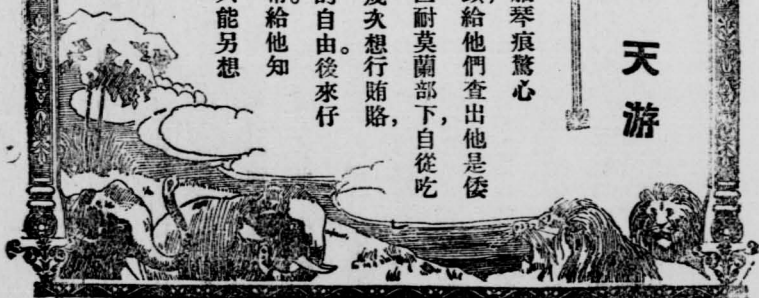 天游
琴痕驚心
給他們查出他是倭
耐莫蘭部下，自從吃
次想行賄賂，
自由。後來仔
給他知
能另想